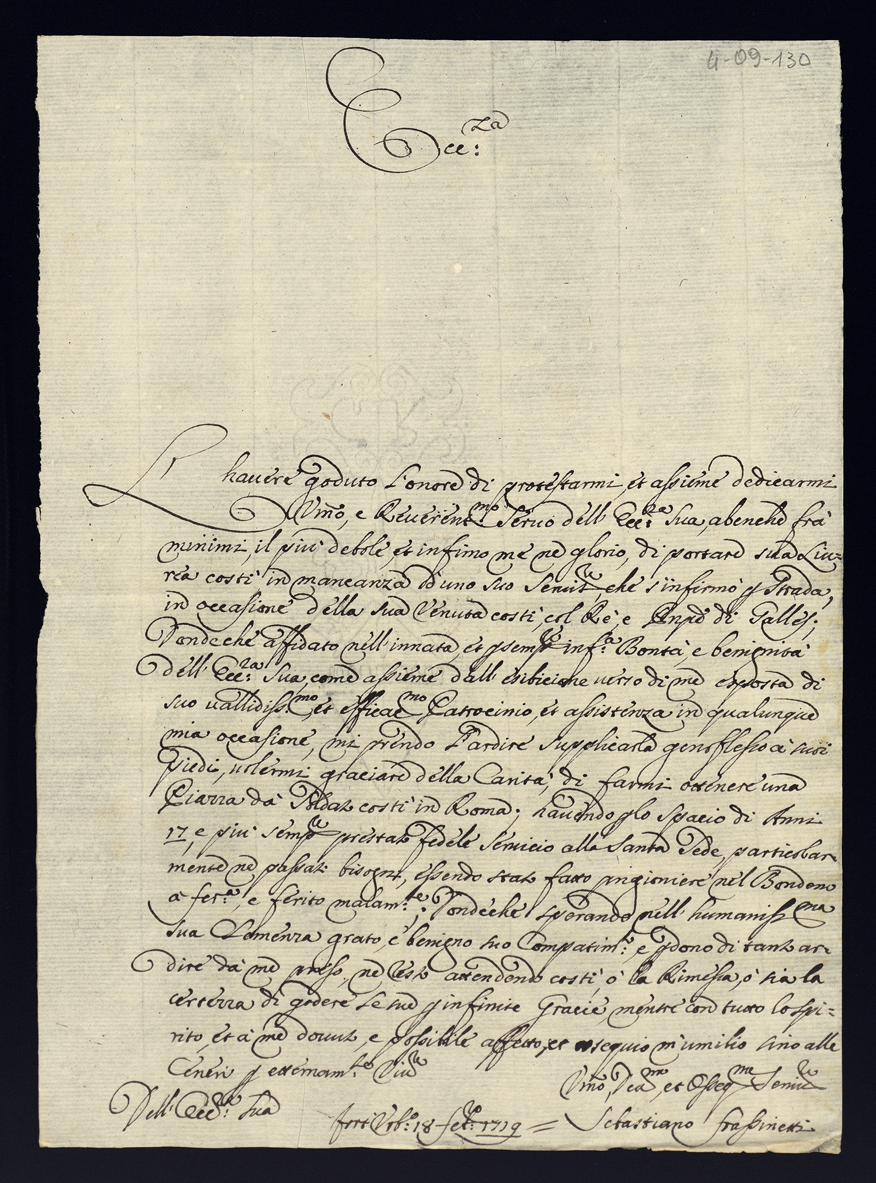 4-09-130
Ecc:za
L' havere goduto l'onore di protestarmi et assieme dedicarmi
Umo, e Reverent.mo Servo dell' Ecc:za Sua, abenche frà
minimi, il più debole, et infimo me ne glorio, di portare sua Liu-
rea costì in mancanza d'uno suo Servit.re che s'infirmò p Strada,
in occasione della sua Venuta costì, col Rè, e di Galles;
Dondeche affidato nell' innata, et psemp.re inf.ta Bontà, e benignità
dell' Ecc:za Sua come assieme dall' esibicione verso di me esposta di
suo vallidiss.mo et efficac.mo Patrocinio, et assistenza in qualunque
mia occasione, mi prendo l'ardire supplicarla genoflesso a' suoi
piedi, volermi graciare della Carità, di farmi ottenere una
Piazza da Soldato costì in Roma; havendo plo spacio di Anni
17, e più semp.re prestato fedele Servicio alla Santa Sede, particolar-
mente ne passati bisogni, essendo stato fatto prigioniere nel Bondeno
a fer.a e ferito malam.te; Dondeche sperando nell' humaniss.ma
sua Clemenza grato e benigno suo Compatim.to e pdono di tanto ar-
dire dà me preso, ne resto attendendo costì ò la Rimessa, ò sia la
certezza di godere le sue pinfinite Gracie, mentre con tutto lo spi-
rito, et à me dovuto, e possibile affetto, et ossequio m'umilio sino alle
Ceneri p eternam.te
Dell' Ecc:za Sua
Umo, Dev.mo, et Osseq.mo Servit.re
fort' Urb.o 18 1719 = Sebastiano Frassinetti